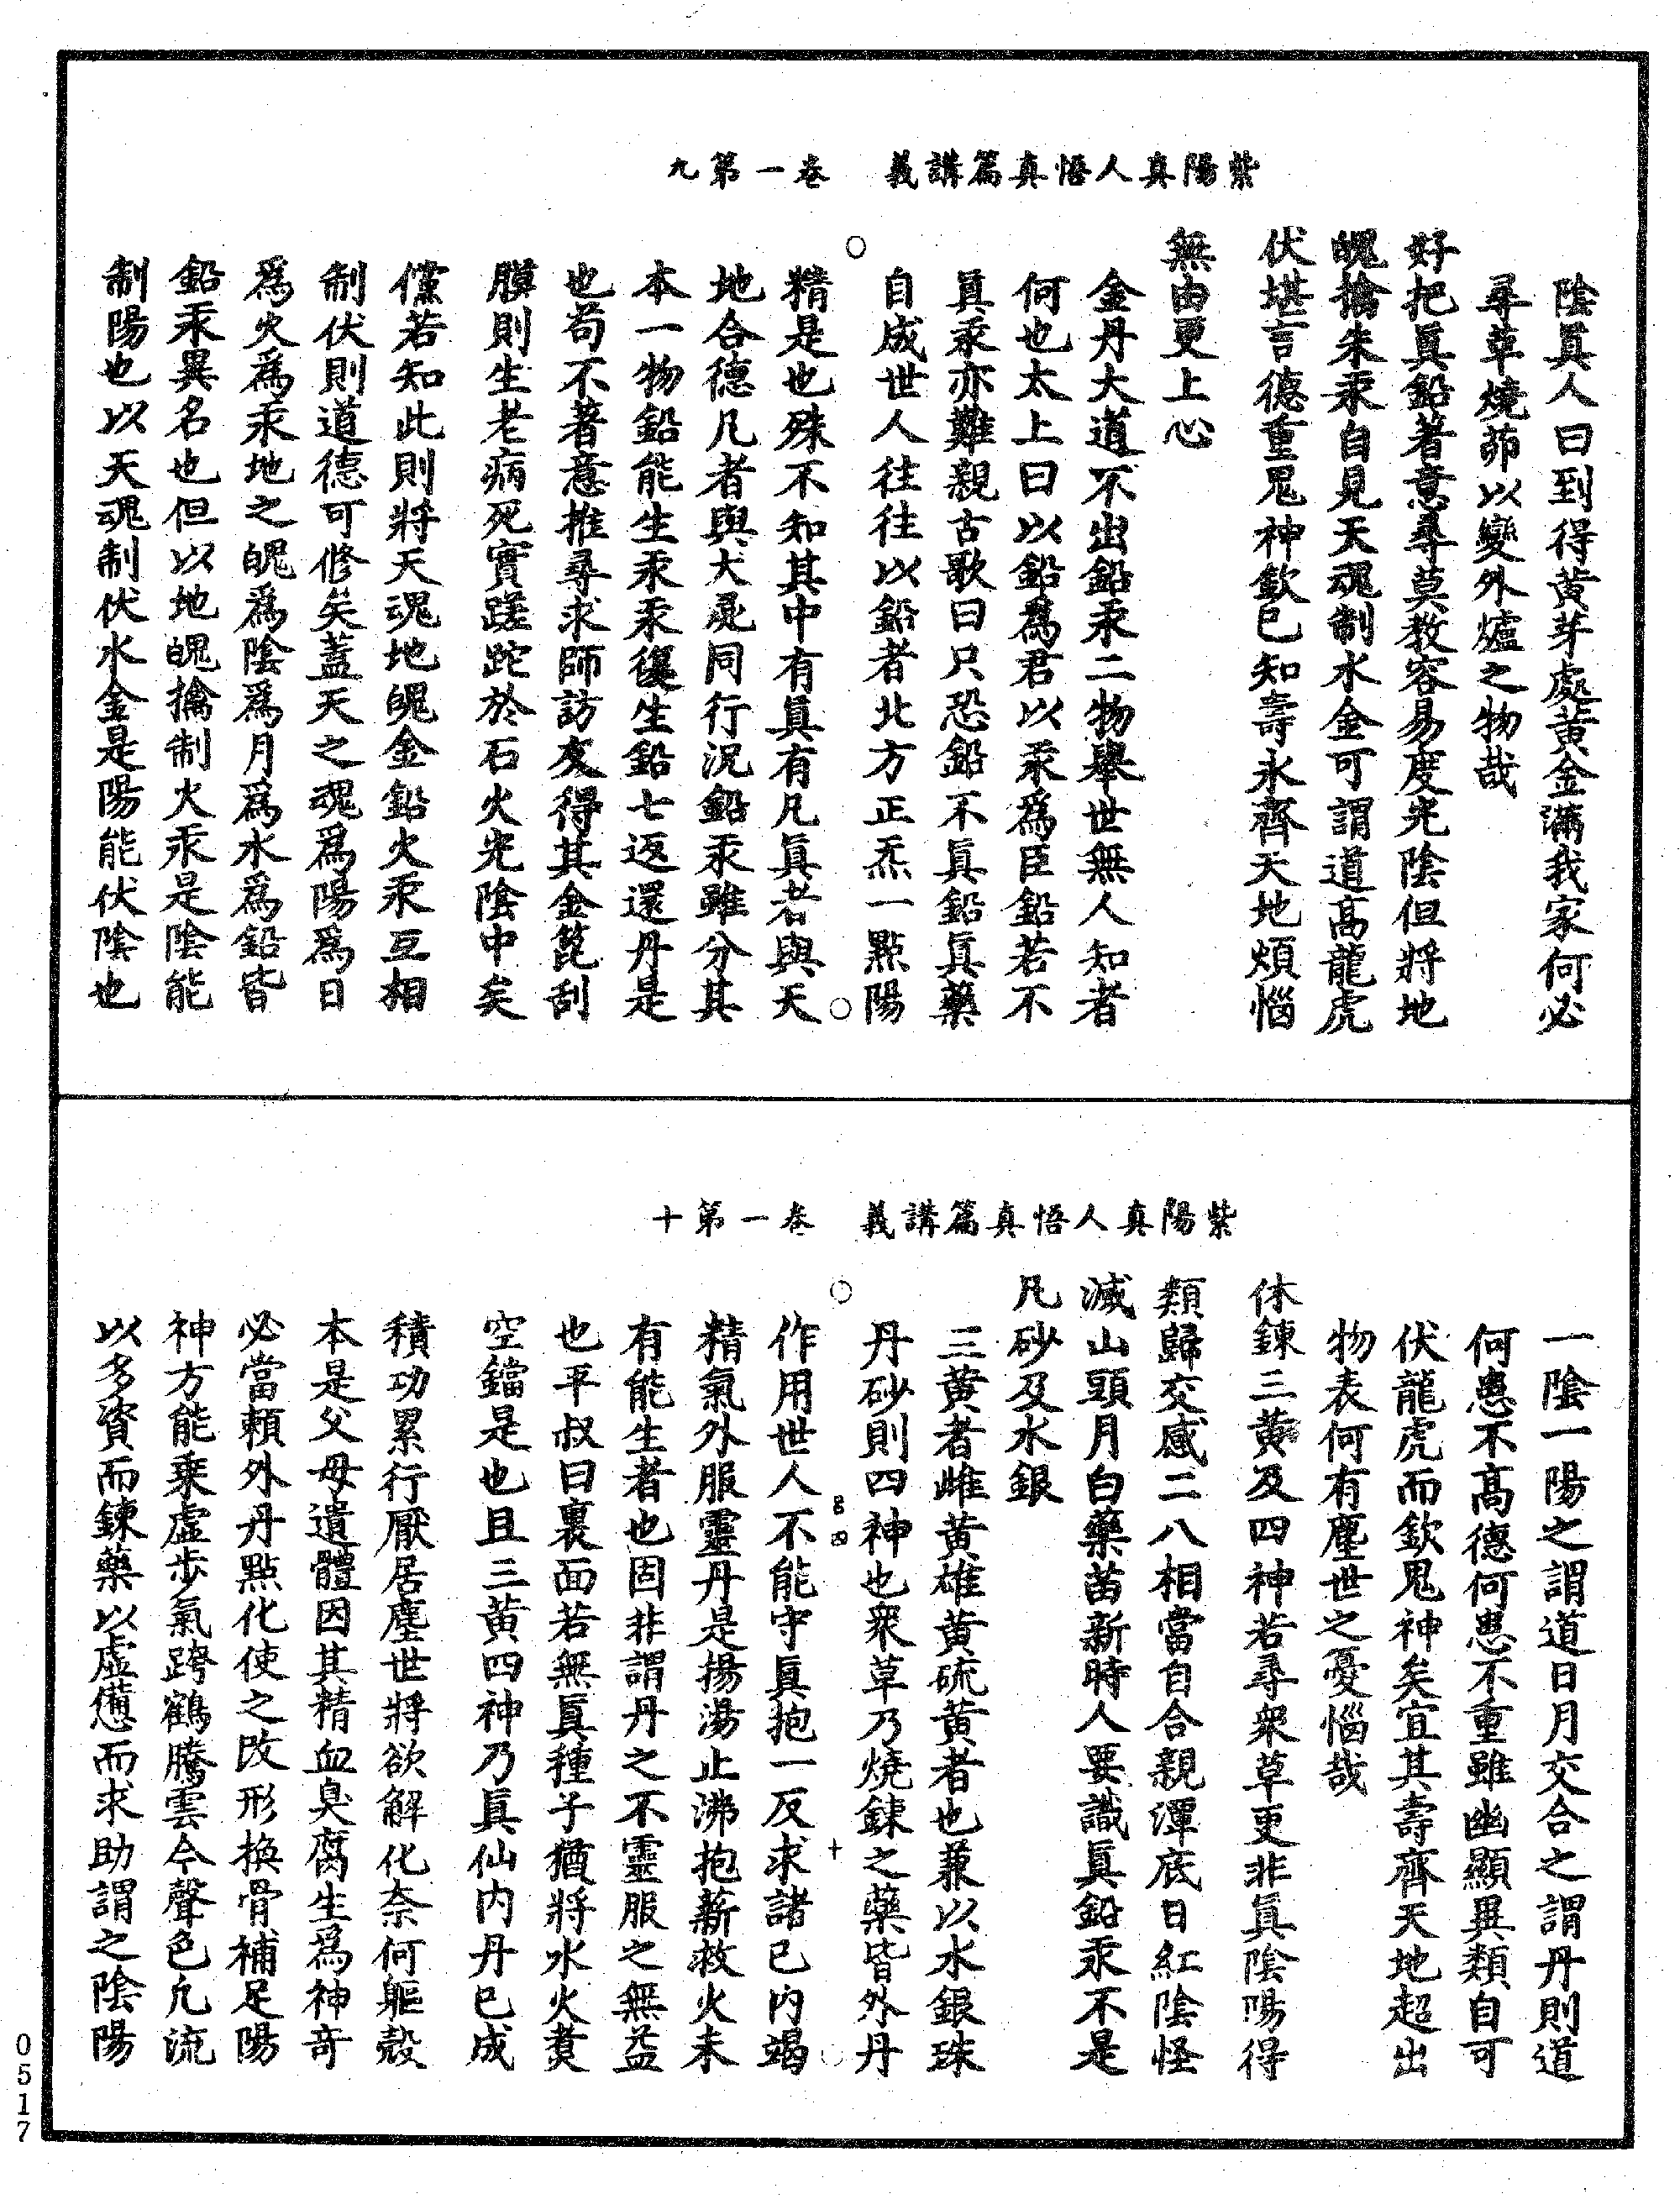 紫陽真人悟真篇講義　卷一第九
陰眞人曰到得黃芽處黃金滿我家何必
尋草燒茆以變外爐之物哉
好把眞鉛著意尋莫教容易度光陰但將地
魄擒朱汞自見天魂制水金可謂道高龍虎
伏堪言德重鬼神欽已知壽永齊天地煩惱
無由更上心
金丹大道不出鉛汞二物舉世無人知者
何也太上曰以鉛爲君以汞爲臣鉛若不
眞汞亦難親古歌曰只恐鉛不眞鉛眞藥
自成世人往往以鉛者北方正炁一點陽
精是也殊不知其中有眞有凡眞者與天
地合德凡者與犬彘同行況鉛汞雖分其
本一物鉛能生汞汞復生鉛七返還丹是
也苟不著意推尋求師訪友得其金篦刮
膜則生老病死實蹉跎於石火光陰中矣
儻若知此則將天魂地魄金鉛火汞互相
制伏則道德可修矣蓋天之魂爲陽爲日
爲火爲汞地之魄爲陰爲月爲水爲鉛皆
鉛汞異名也但以地魄擒制火汞是陰能
制陽也以天魂制伏水金是陽能伏陰也
紫陽真人悟真篇講義　卷一第十
一陰一陽之謂道日月交合之謂丹則道
何患不高德何患不重雖幽顯異類自可
伏龍虎而欽鬼神矣宜其壽齊天地超出
物表何有塵世之憂惱哉
休鍊三黃及四神若尋衆草更非眞陰陽得
類歸交感二八相當自合親潭底日紅陰怪
滅山頭月白藥苗新時人要識眞鉛汞不是
凡砂及水銀
三黃者雌黃雄黃硫黃者也兼以水銀珠
丹砂則四神也衆草乃燒鍊之藥皆外丹
作用世人不能守眞抱一反求諸己內竭
精氣外服靈丹是揚湯止沸抱薪救火未
有能生者也固非謂丹之不靈服之無益
也平叔曰裏面若無眞種子猶將水火煑
空鐺是也且三黃四神乃眞仙內丹已成
積功累行厭居塵世將欲解化奈何軀殼
本是父母遺體因其精血臭腐生爲神奇
必當頼外丹點化使之改形換骨補足陽
神方能乗虛步氣跨鶴騰雲今聲色凢流
以多資而鍊藥以虛憊而求助謂之陰陽
呂四　十
0517